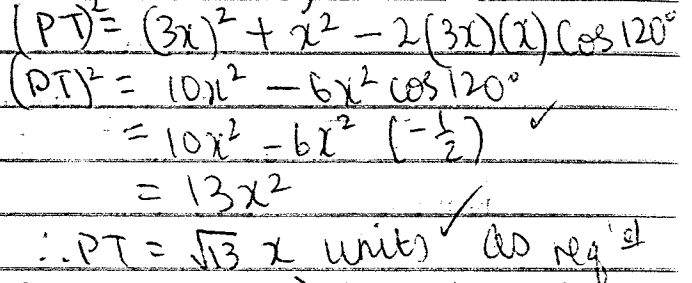 (PT)² = (3x)² + x² - 2(3x)(x) Cos 120°
(PT)² = 10x² - 6x² cos 120°
= 10x² - 6x² (-½) ✓
= 13x²
∴ PT = √13 x units ✓ as req'd